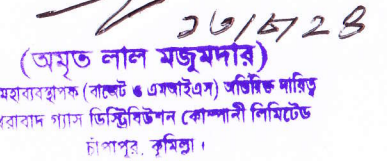 ২৬/৮/২৪
(অমৃত লাল মজুমদার)
মহাব্যবস্থাপক (বাজেট ও এমআইএস) অতিরিক্ত দায়িত্ব
রাবাদ গ্যাস ডিস্ট্রিবিউশন কোম্পানী লিমিটেড
চাঁপাপুর, কুমিল্লা।